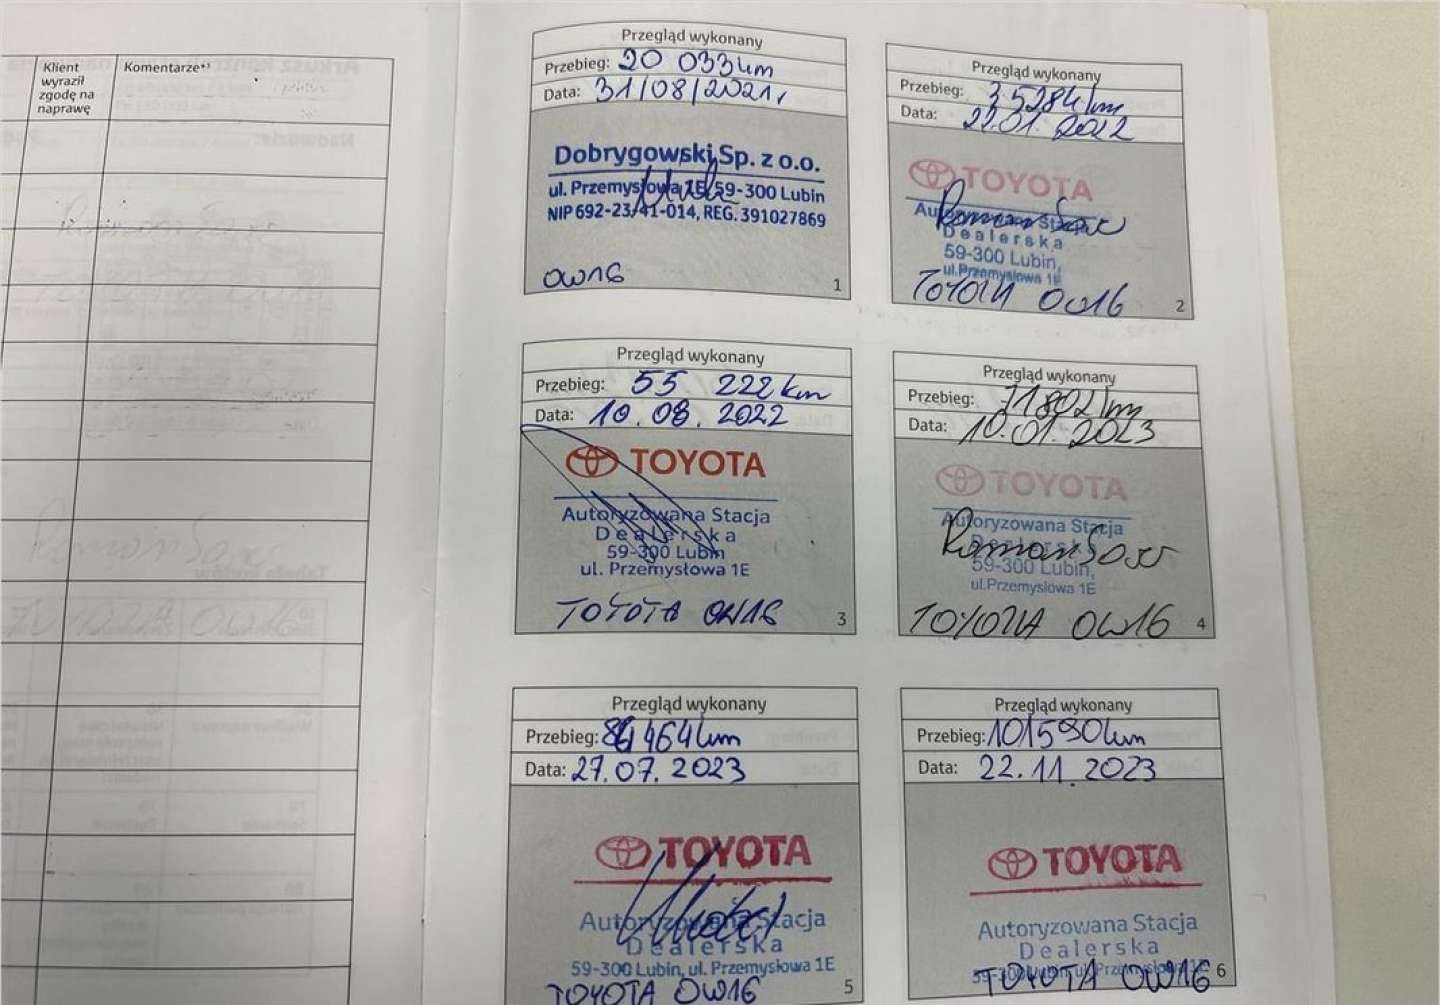 Klient
wyraził
zgodę na
naprawę
Komentarze*⁾
Przegląd wykonany
Przebieg: 20 033 km
Data: 31/08/2021r
Dobrygowski Sp. z o.o.
ul. Przemysłowa 1E, 59-300 Lubin
NIP 692-23-41-014, REG. 391027869
OW16
1
Przegląd wykonany
Przebieg: 35284 km
Data: 22.01.2022
TOYOTA
Autoryzowana Stacja
Dealerska
59-300 Lubin,
ul.Przemysłowa 1E
TOYOTA OW16
2
Przegląd wykonany
Przebieg: 55 222 km
Data: 10.08.2022
TOYOTA
Autoryzowana Stacja
Dealerska
59-300 Lubin
ul. Przemysłowa 1E
TOYOTA OW16
3
Przegląd wykonany
Przebieg: 71802 km
Data: 10.01.2023
TOYOTA
Autoryzowana Stacja
Dealerska
59-300 Lubin,
ul.Przemysłowa 1E
TOYOTA OW16
4
Przegląd wykonany
Przebieg: 464 km
Data: 27.07.2023
TOYOTA
Autoryzowana Stacja
Dealerska
59-300 Lubin, ul. Przemysłowa 1E
TOYOTA OW16
5
Przegląd wykonany
Przebieg: 101590 km
Data: 22.11.2023
TOYOTA
Autoryzowana Stacja
Dealerska
59-300 Lubin, ul. Przemysłowa 1E
TOYOTA OW16
6